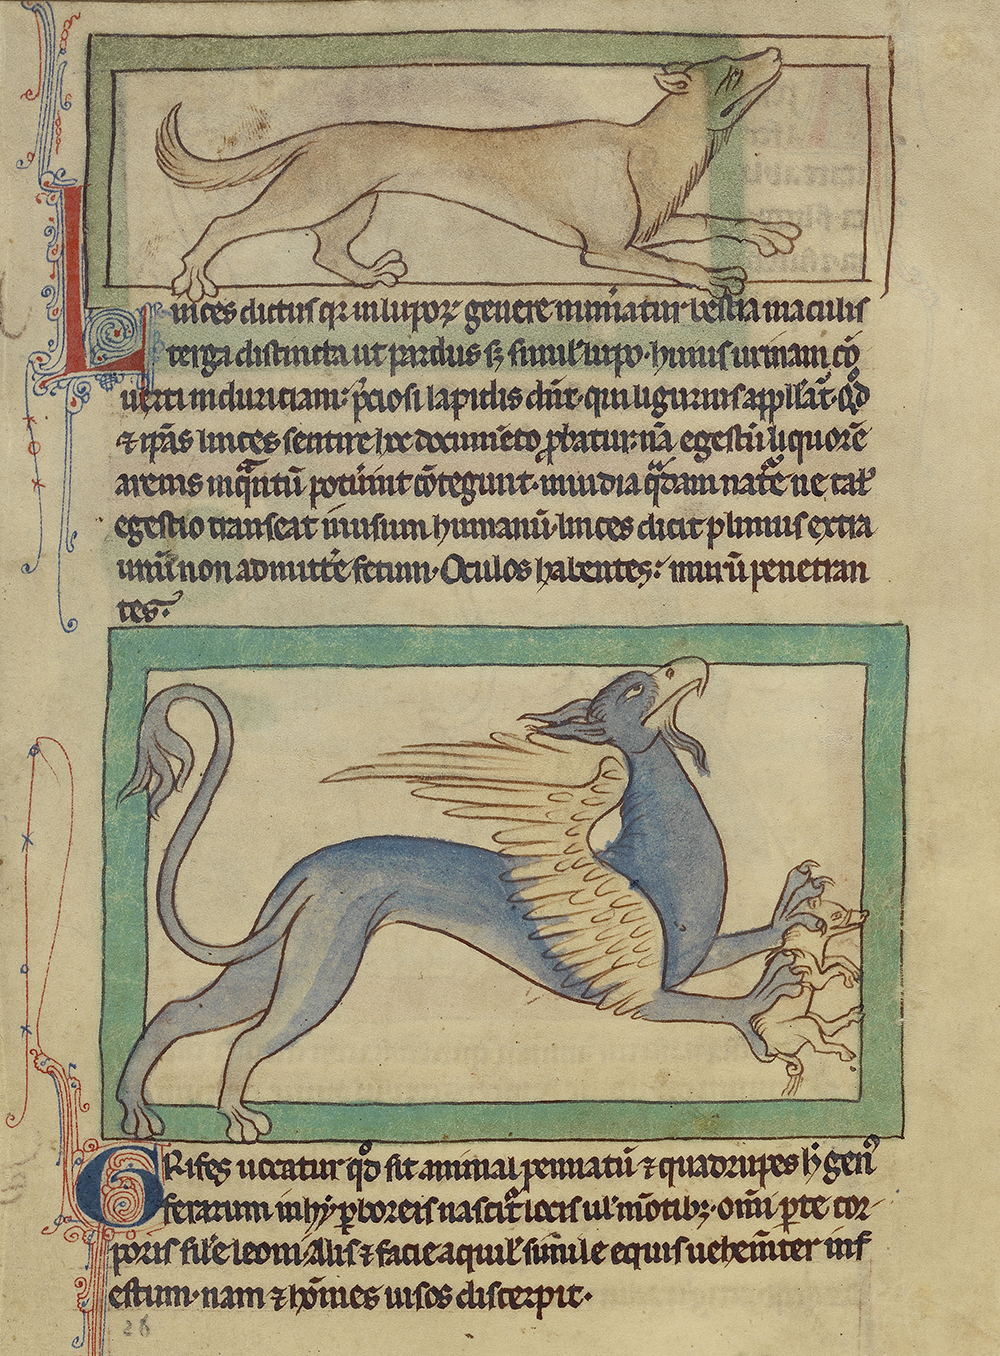 Linces dictus qr in lupoꝝ genere num̄atur bestia maculis
terga distincta ut pardus sꝫ simił lupo · huius urinam cō
uerti in duriciam p̄ciosi lapidis dn̄t · qui ligurius app̄llat̃ · Qd̓
⁊ ip̃as linces sentire hoc documēto ꝓbatur · nã egestũ liquorē
arenis inqͣntũ potũint cõtegunt · inuidia qͣdam nat̃e ne taľ
egestio transeat in usum humanũ · linces dicit plinius extra
unũ non admitt̃e fetum · Oculos habentes : murũ penetran
tes ·
GRifes uocatur qd̓ sit animal pennatũ ⁊ quadrupes h̓ gen̓
ferarum in hyꝑboreis nascit̃ locis ul̓ mõtibꝫ · om̃i ꝑte cor
poris sil̓e leoni Alis ⁊ facie aquil̓ simile equis uehem̃ter inf
estum · nam ⁊ hõines uisos discerpit ·
26